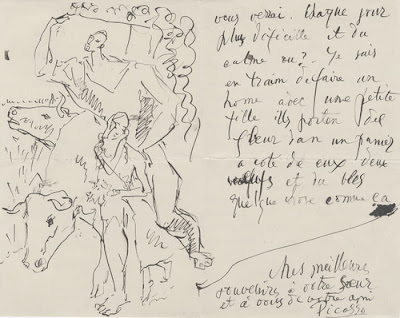 vous verrai. Chaque jour
plus dificille et du
calme ou? Je suis
en train de faire un
home avec une petite
fille ils porten des
fleur dan un panier
a coté de eux deux
et du bles
quelque chose comme ça
Mes meilleures
souvenirs à votre Sœur
et à vous de votre ami
Picasso